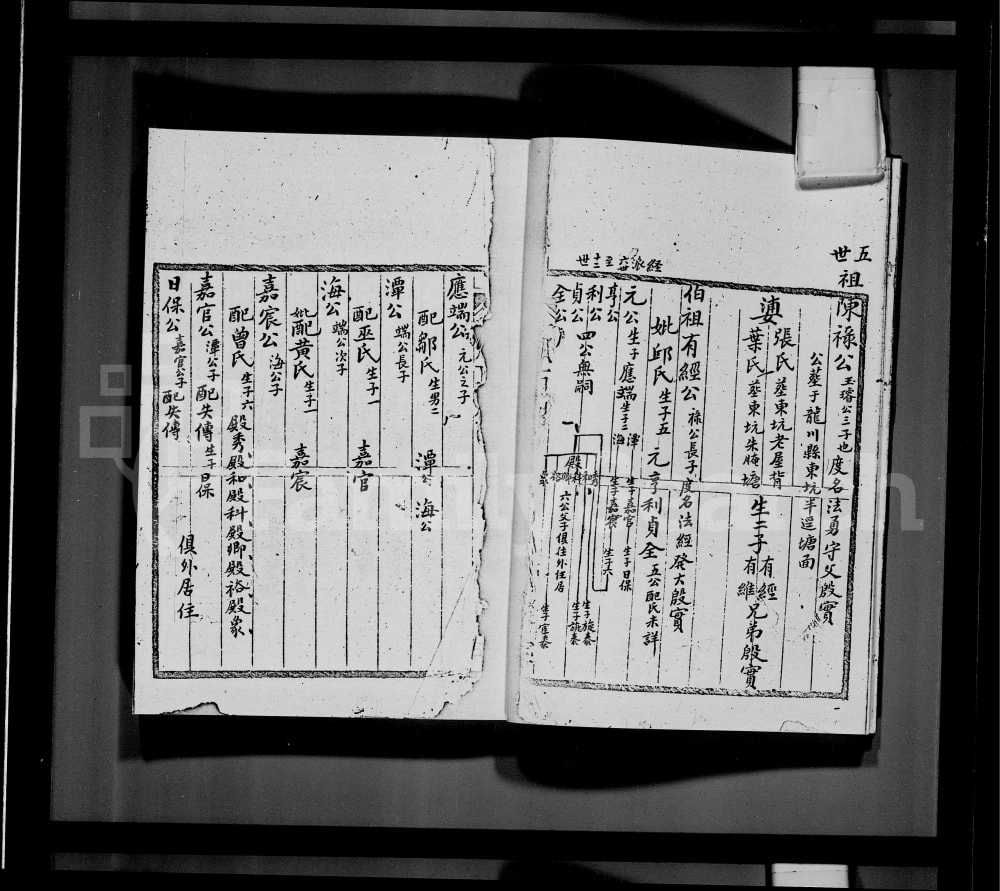 五世
祖陳祿公 玉璿公三子也 度名法勇守父殷實
公塟于龍川縣東坑半逕塘面
張氏塟東坑老屋背
葉氏塟東坑朱腌塘
生二子有經有維兄弟殷實
經派六世至十二世
伯祖有經公 祿公長子 度名法經發大殷實
妣邱氏生子五 元亨利貞全 五公配氏未詳
元公生子應端生子二潭海
生子嘉官 生子日保
生子嘉宸 生子六
亨公
利公
貞公 四公無嗣
全公
殿
秀和科卿裕象
六公父子俱往外住居
生子旋泰
生子訛泰
生子宦泰
應端公 元公之子
配鄒氏生男二 潭公 海公
潭公 端公長子
配巫氏生子一 嘉官
海公 端公次子
妣配黃氏生子一 嘉宸
嘉宸公 海公子
配曾氏生子六 殿秀殿和殿科殿卿殿裕殿象
嘉官公 潭公子 配失傳 生子日保
日保公 嘉官公子 配失傳
俱外居住
FamilySearch